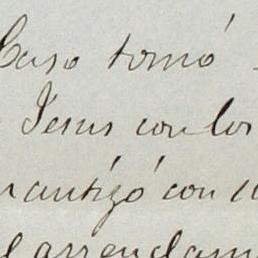 Caso tomó
Jesus con los
rantizó con
el arrendam